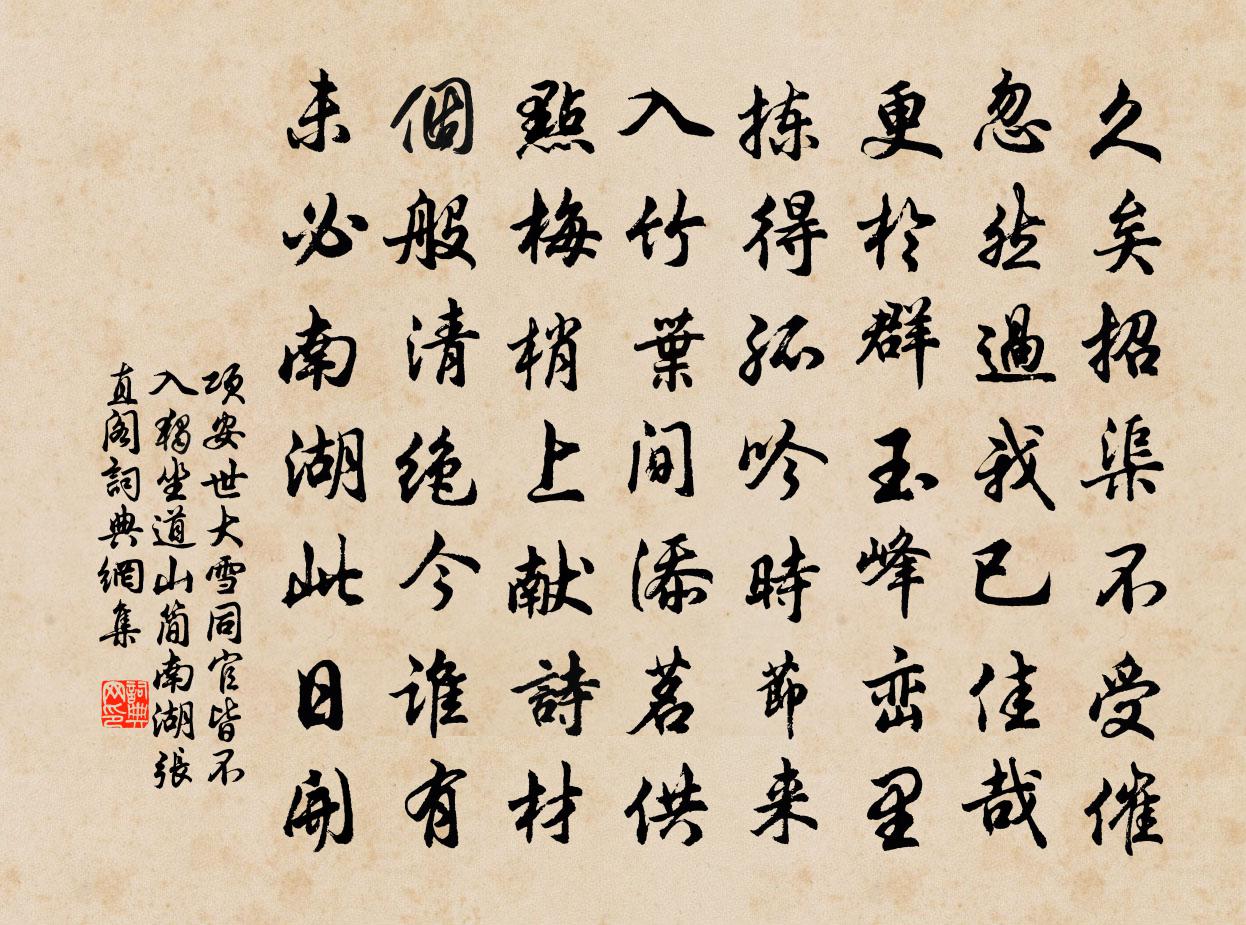 久矣招渠不受催
忽然過我已佳哉
更於群玉峰峦里
拣得孤吟時節来
入竹葉间添茗供
點梅梢上献詩材
個般清绝今谁有
未必南湖此日開
项安世大雪同官皆不
入獨坐道山簡南湖張
直阁詞典網集
詞典
网印